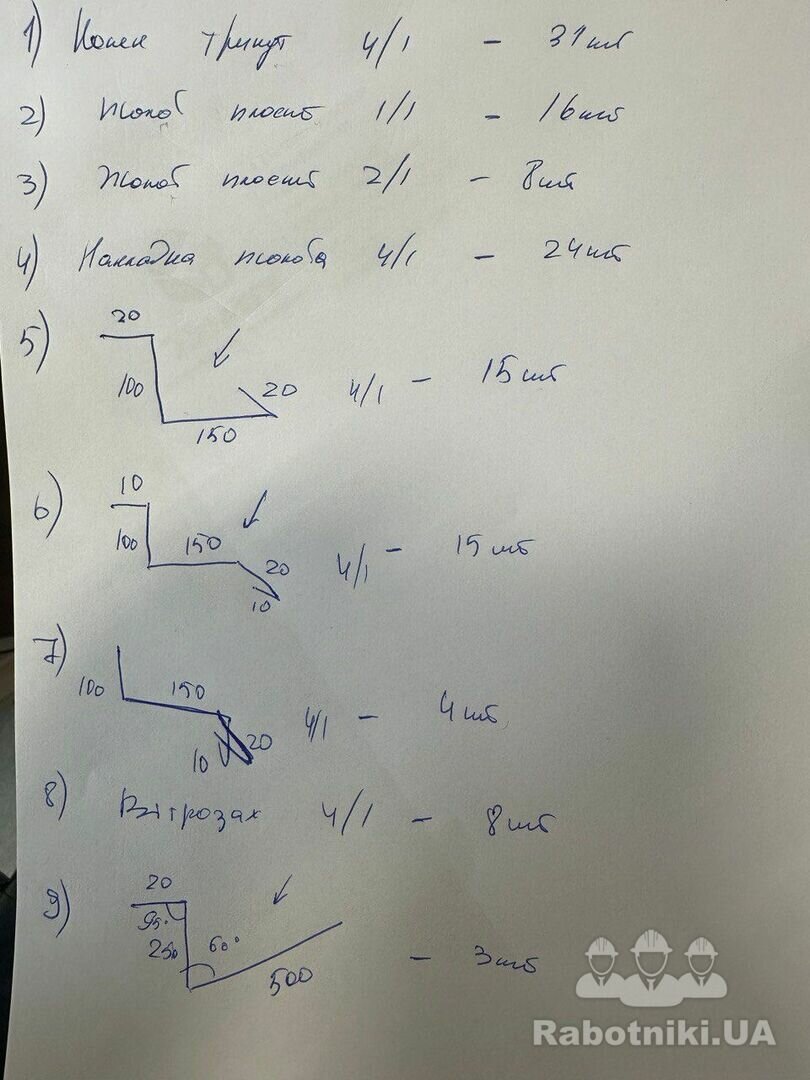 1) Конек трикут 4/1 - 31 шт
2) Жолоб плоский 1/1 - 16 шт
3) Жолоб плоский 2/1 - 8 шт
4) Накладка жолоба 4/1 - 24 шт
5) 20 100 150 20 4/1 - 15 шт
6) 10 100 150 20 10 4/1 - 15 шт
7) 100 150 20 10 4/1 - 4 шт
8) Вітрозах 4/1 - 8 шт
9) 20 95° 250 60° 500 - 3 шт
Rabotniki.UA